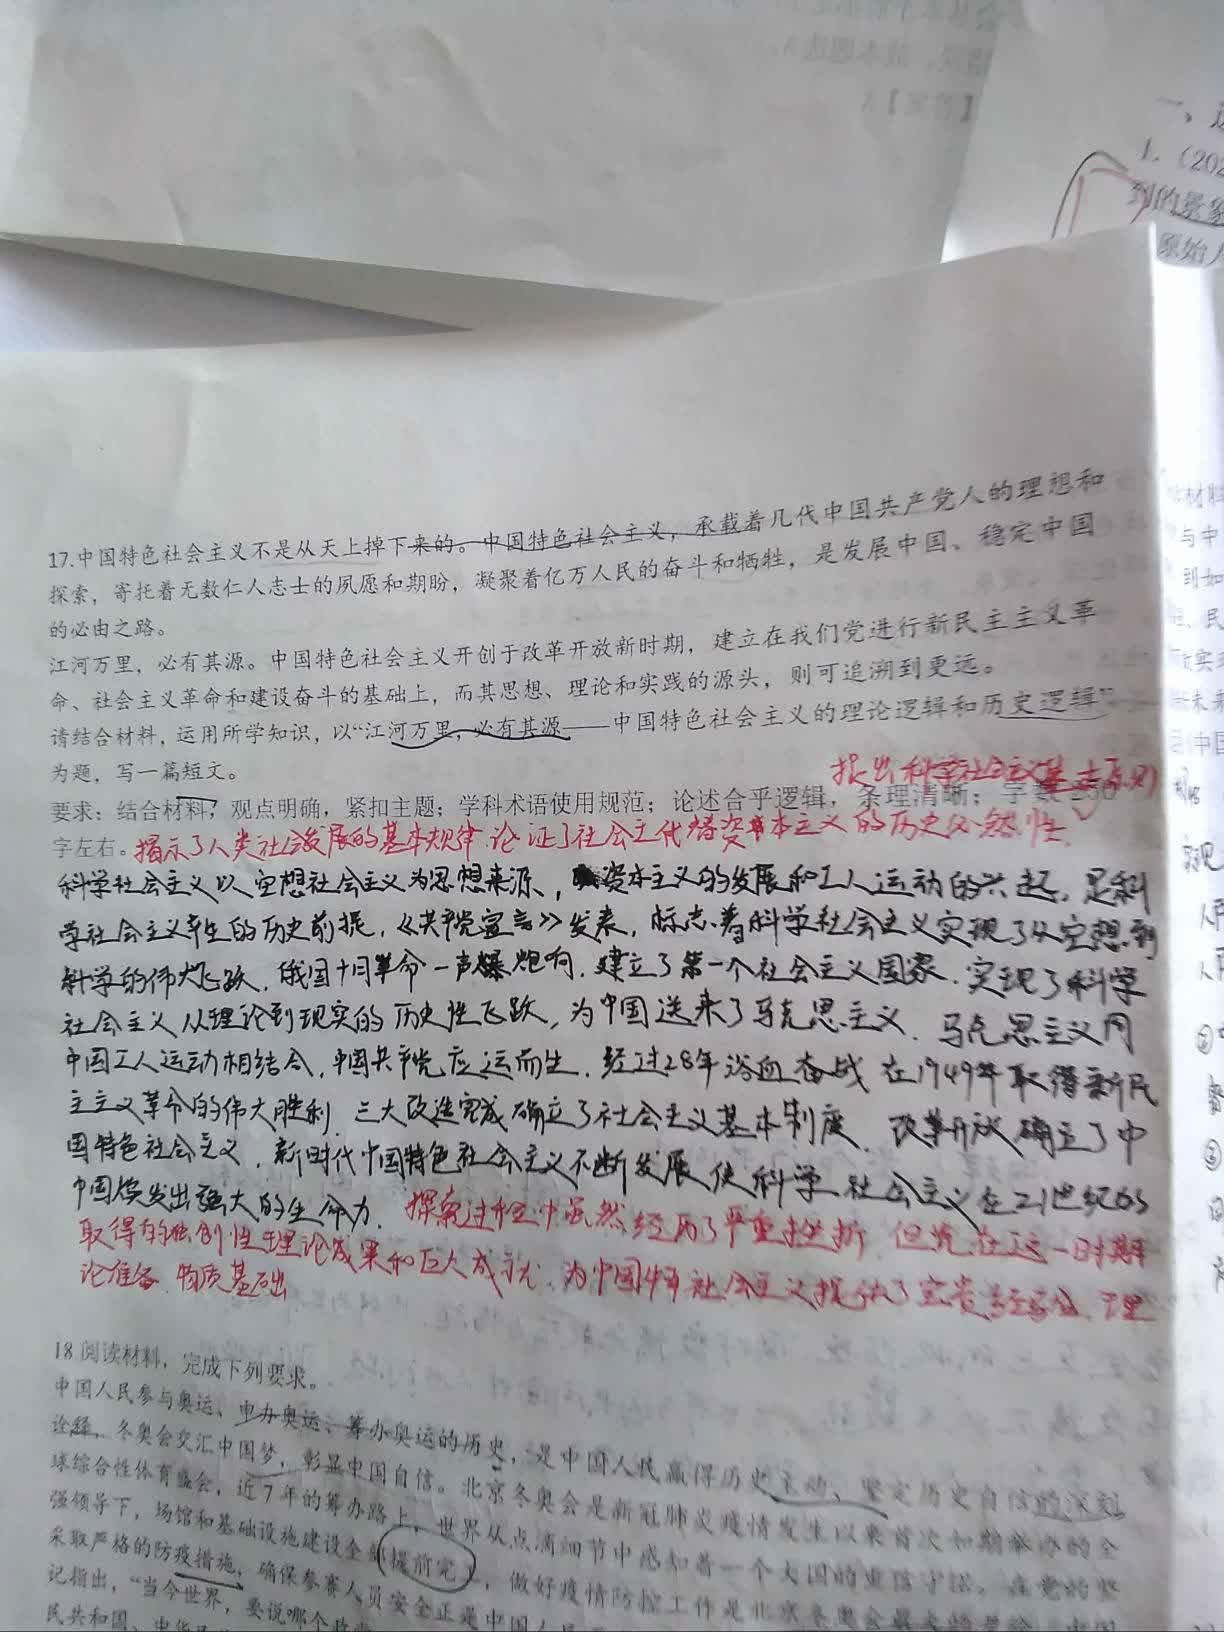 一、
1.（202
到的景象
原始人
17.中国特色社会主义不是从天上掉下来的。中国特色社会主义，承载着几代中国共产党人的理想和
探索，寄托着无数仁人志士的夙愿和期盼，凝聚着亿万人民的奋斗和牺牲，是发展中国、稳定中国
的必由之路。
江河万里，必有其源。中国特色社会主义开创于改革开放新时期，建立在我们党进行新民主主义革
命、社会主义革命和建设奋斗的基础上，而其思想、理论和实践的源头，则可追溯到更远。
请结合材料，运用所学知识，以“江河万里，必有其源——中国特色社会主义的理论逻辑和历史逻辑”
为题，写一篇短文。
提出科学社会主义基本原则
要求：结合材料，观点明确，紧扣主题；学科术语使用规范；论述合乎逻辑，条理清晰；字数250
字左右。揭示了人类社会发展的基本规律 论证了社会主代替资本主义的历史必然性
科学社会主义以空想社会主义为思想来源，资本主义的发展和工人运动的兴起，是科
学社会主义产生的历史前提，《共产党宣言》发表，标志着科学社会主义实现了从空想到
科学的伟大飞跃，俄国十月革命一声爆炮响，建立了第一个社会主义国家，实现了科学
社会主义从理论到现实的历史性飞跃，为中国送来了马克思主义，马克思主义同
中国工人运动相结合，中国共产党应运而生，经过28年浴血奋战 在1949年取得新民
主主义革命的伟大胜利，三大改造完成确立了社会主义基本制度，改革开放确立了中
国特色社会主义，新时代中国特色社会主义不断发展 使科学社会主义在21世纪的
中国焕发出强大的生命力，探索过程中虽然经历了严重挫折 但党在这一时期
取得的独创性理论成果和巨大成就，为中国特社会主义提供了宝贵经验、理
论准备 物质基础
18.阅读材料，完成下列要求。
中国人民参与奥运、申办奥运、筹办奥运的历史，是中国人民赢得历史主动、坚定历史自信的深刻
诠释，冬奥会交汇中国梦，彰显中国自信。北京冬奥会是新冠肺炎疫情发生以来首次如期举办的全
球综合性体育盛会，近7年的筹办路上，世界从点滴细节中感知着一个大国的重信守诺。在党的坚
强领导下，场馆和基础设施建设全部提前完工，做好疫情防控工作是北京冬奥会
采取严格的防疫措施，确保参赛人员安全正是中国
记指出，“当今世界，要说哪个政党
民共和国、中华